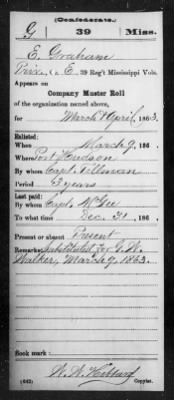 (Confederate.)
G 39 Miss.
E. Graham
Priv., Co. E, 39 Reg't Mississippi Vols.
Appears on
Company Muster Roll
of the organization named above,
for March & April, 1863.
Enlisted:
When March 9, 186 .
Where Port Hudson
By whom Capt. Tillman
Period 3 years
Last paid:
By whom Capt. McGee
To what time Dec. 31, 186 .
Present or absent Present
Remarks: Substituted for G. W.
Walker, March 9, 1863.
Book mark:
W. W.
(642) Copyist.